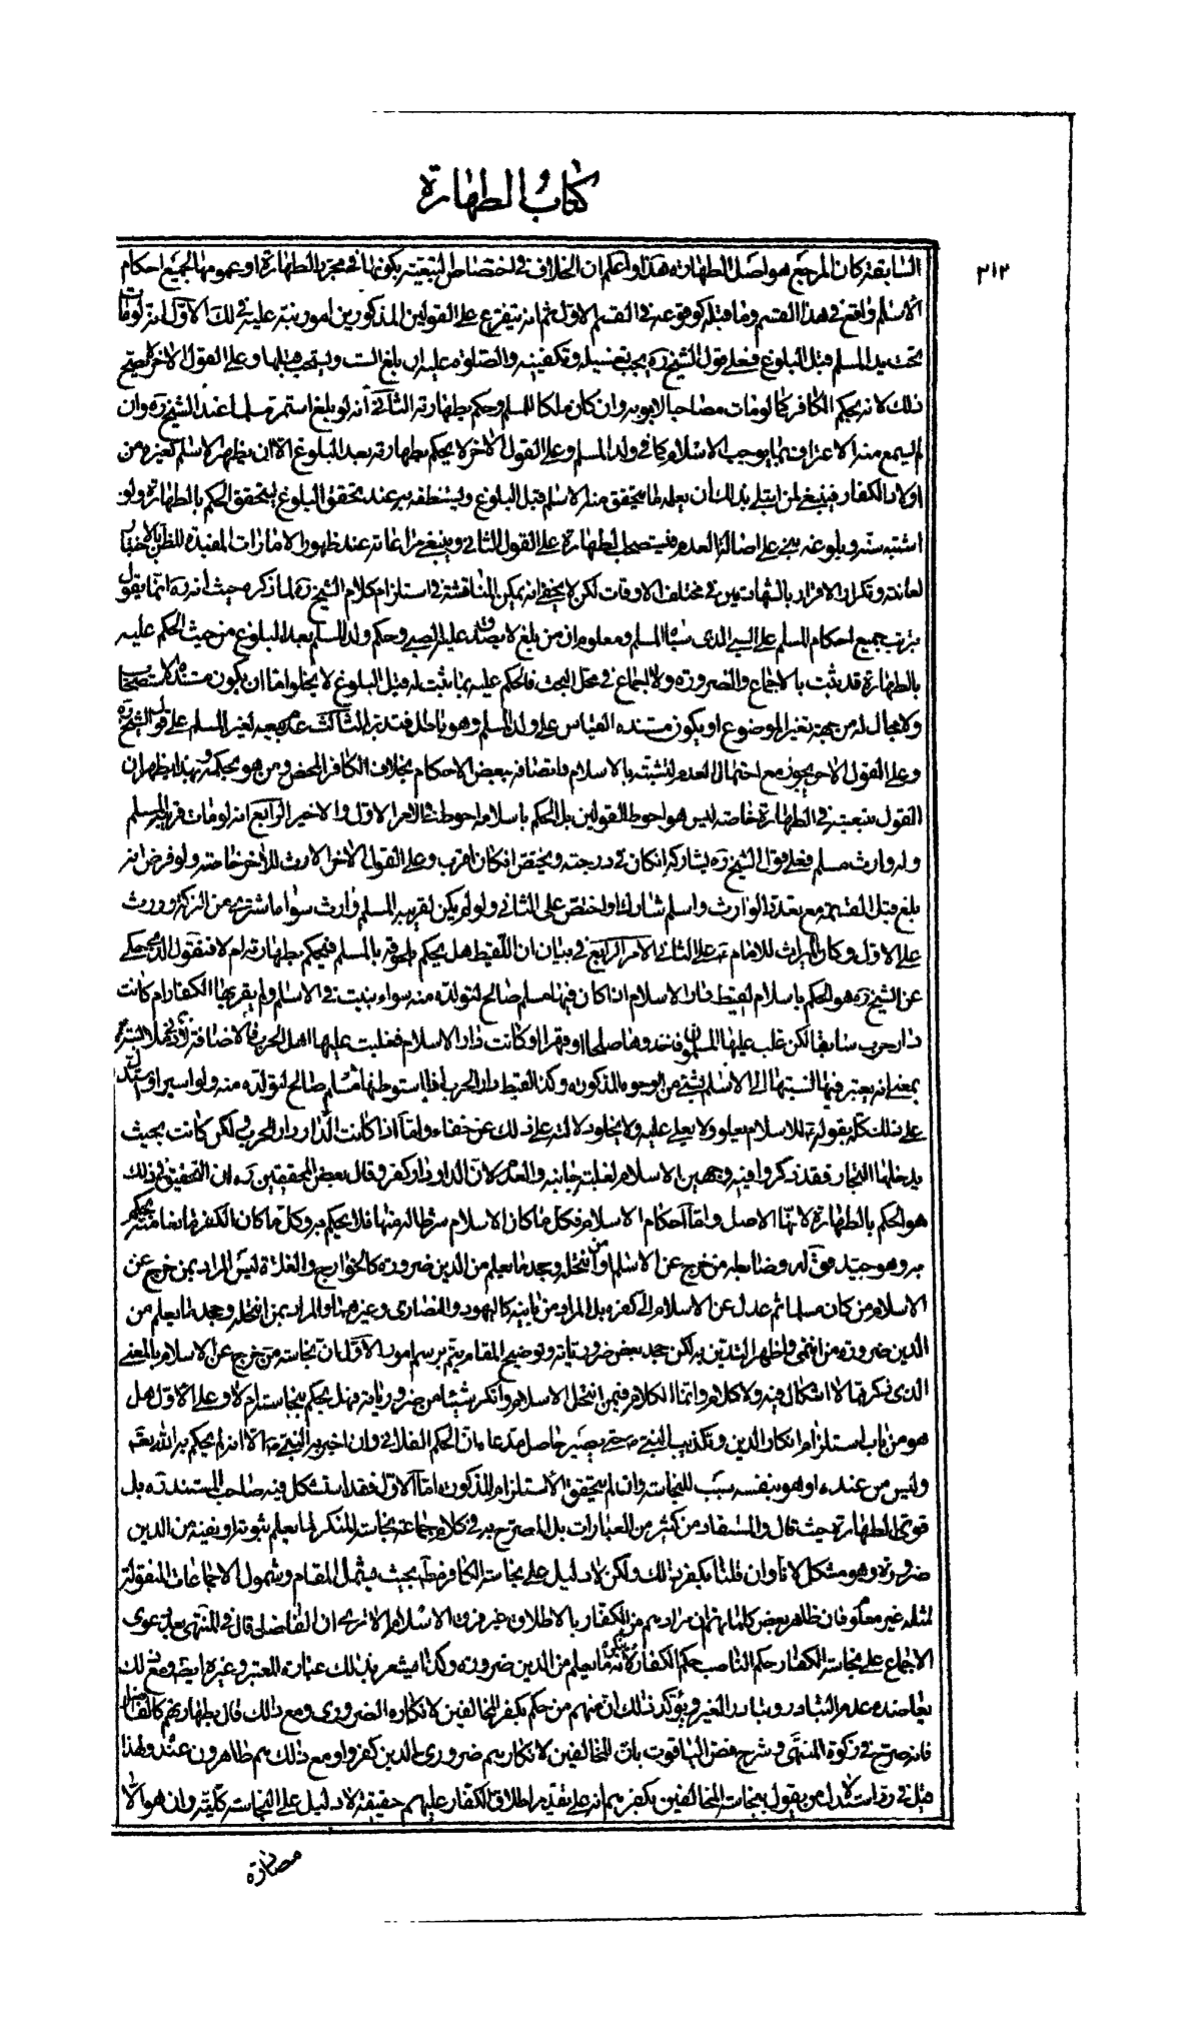 كتاب الطهارة
٣١٢
السابقة كان المرجع هو اصل الطهارة هذا واعلم ان الخلاف فى اختصاص التبعية بكونها فى مجرد الطهارة او عمومها لجميع احكام
الاسلام واقع فى هذا القسم وما قبله كوقوعه فى القسم الاول ثم انه يتفرع على القولين المذكورين امور ننبه عليه فى ذلك الاول انه لو مات
تحت يد المسلم قبل البلوغ فعلى قول الشيخ ره يجب تغسيله وتكفينه والصلوة عليه ان بلغ الست ويستحب قبلها وعلى القول الاخر لا يصح
ذلك لانه بحكم الكافر كما لو مات مصاحبا لابويه وان كان ملكا للمسلم وحكم بطهارته الثانى انه لو بلغ استمر مسلما عند الشيخ ره وان
لم يسمع منه الاعتراف بما يوجب الاسلام كما فى ولد المسلم وعلى القول الاخر لا يحكم بطهارته بعد البلوغ الا ان يظهر الاسلام كغيره من
اولاد الكفار فينبغى لمن ابتلى بذلك ان يعلمه ما يتحقق منه الاسلام قبل البلوغ ويستنطقه به عند تحقق البلوغ ليتحقق الحكم بالطهارة ولو
اشتبه سنه وبلوغه بنى على اصالة العدم فيستصحب الطهارة على القول الثانى وينبغى مراعاته عند ظهور الامارات المفيدة للظن بالاختبار
لعانته وتكرار الاقرار بالشهادتين فى مختلف الاوقات لكن لا يخفى انه يمكن المناقشة فى استلزام كلام الشيخ ره لما ذكره حيث انه ره انما يقول
بترتب جميع احكام المسلم على السبى الذى سباه المسلم ومعلوم ان من بلغ لا يصدق عليه الصبى وحكم ولد المسلم بعد البلوغ من حيث الحكم عليه
بالطهارة قد ثبت بالاجماع والضرورة ولا اجماع فى محل البحث فالحكم عليه بما ثبت له قبل البلوغ لا يخلو اما ان يكون مستنده الاستصحاب
ولا مجال له من جهة تغير الموضوع او يكون مستنده القياس على ولد المسلم وهو باطل فتدبر الثالث عدم بيعه لغير المسلم على قول الشيخ ره
وعلى القول الاخر يجوز مع احتمال العدم لتشبثه بالاسلام واتصافه ببعض الاحكام بخلاف الكافر المحض ومن هو بحكمه وبهذا يظهر ان
القول بتبعيته فى الطهارة خاصة ليس هو احوط القولين بل الحكم باسلامه احوط فى الامر الاول والاخير الرابع انه لو مات قريبه المسلم
وله وارث مسلم فعلى قول الشيخ ره يشاركه ان كان فى درجته ويختص ان كان اقرب وعلى القول الاخر الارث للاخر خاصة ولو فرض انه
بلغ قبل القسمة مع تعدد الوارث واسلم شارك او اختص على الثانى ولو لم يكن لقريبه المسلم وارث سواه اشترى من التركة وورث
على الاول وكان الميراث للامام ع على الثانى الامر الرابع فى بيان ان اللقيط هل يحكم بلحوقه بالمسلم فيحكم بطهارته ام لا فنقول المحكى
عن الشيخ ره هو الحكم باسلام لقيط دار الاسلام ان كان فيها مسلم صالح لتولده منه سواء بنيت فى الاسلام ولم يقربها الكفار ام كانت
دار حرب سابقا لكن غلب عليها المسلمون فاخذوها صلحا او قهرا او كانت دار الاسلام فغلبت عليها اهل الحرب
بمعنى انه يعتبر فيها النسبة الى الاسلام بشئ من الوجوه المذكورة وكذا لقيط دار الحرب اذا استوطنها مسلم صالح لتولده منه ولو اسيرا واستدل
على ذلك كله بقوله ع الاسلام يعلو ولا يعلى عليه ولا يخلو دلالته على ذلك عن خفاء واما اذا كانت الدار دار الحرب لكن كانت بحيث
يدخلها التجار فقد ذكروا فيه وجهين الاسلام لغلبة جانبه والعدم لان الدار دار كفر وقال بعض المحققين ره ان التحقيق فى ذلك
هو الحكم بالطهارة لانها الاصل واما احكام الاسلام فكل ما كان الاسلام شرطا له فيها فلا يحكم به وكل ما كان الكفر مانعا منه يحكم
به وهو جيد قوله وضابطه من خرج عن الاسلام او من انتحله وجحد ما يعلم من الدين ضرورة كالخوارج والغلاة ليس المراد بمن خرج عن
الاسلام من كان مسلما ثم عدل عن الاسلام الى كفر بل المراد من باينه كاليهود والنصارى وغيرهما والمراد بمن انتحله وجحد ما يعلم من
الدين ضرورة من انتمى واظهر التدين به لكن جحد بعض ضرورياته وتوضيح المقام يتم برسم امور الاول ان نجاسة من خرج عن الاسلام بالمعنى
الذى ذكرنا لا اشكال فيه ولا كلام وانما الكلام فيمن انتحل الاسلام وانكر شيئا من ضرورياته فهل يحكم بنجاسته ام لا وعلى الاول هل
هو من باب استلزام انكار الدين وتكذيب النبى ص حتى يصير حاصل مدعاه ان الحكم الفلانى وان اخبر به النبى ص الا انه لم يحكم به الله تعالى
وليس من عنده او هو بنفسه سبب للنجاسة وان لم يتحقق الاستلزام المذكور اما الاول فقد استشكل فيه صاحب المستند ره بل
قوى الطهارة حيث قال والمستفاد من كثير من العبارات بل المصرح به فى كلام جماعة نجاسة المنكر لما يعلم ثبوته او نفيه من الدين
ضرورة وهو مشكل لانا وان قلنا بكفره بذلك ولكن لا دليل على نجاسة الكافر بحيث يشمل المقام وشمول الاجماعات المنقولة
لمثله غير معلوم فان ظاهر بعض كلماتهم ان مرادهم من الكفار بالاطلاق غير فرق الاسلام الا ترى ان الفاضل قال فى المنتهى بعد دعوى
الاجماع على نجاسة الكفار حكم الناصب حكم الكفار لانه ينكر ما يعلم من الدين ضرورة وكذا يشعر بذلك عبارة المعتبر وغيره ايضا ومع ذلك
يعاضده عدم التبادر وتبادر الغير ويؤكد ذلك ان منهم من حكم بكفر المخالفين لانكاره الضرورى ومع ذلك قال بطهارتهم كالفاضل
فانه صرح فى زكوة المنتهى وشرح فص الياقوت بان المخالفين لانكارهم ضرورى الدين كفروا ومع ذلك هم طاهرون عنده ولهذا
قيل فى رد استدلال من يقول بنجاسة المخالفين بكفرهم انه على تقدير اطلاق الكفار عليهم حقيقة لا دليل على النجاسة كلية وان هو الا
مصادرة